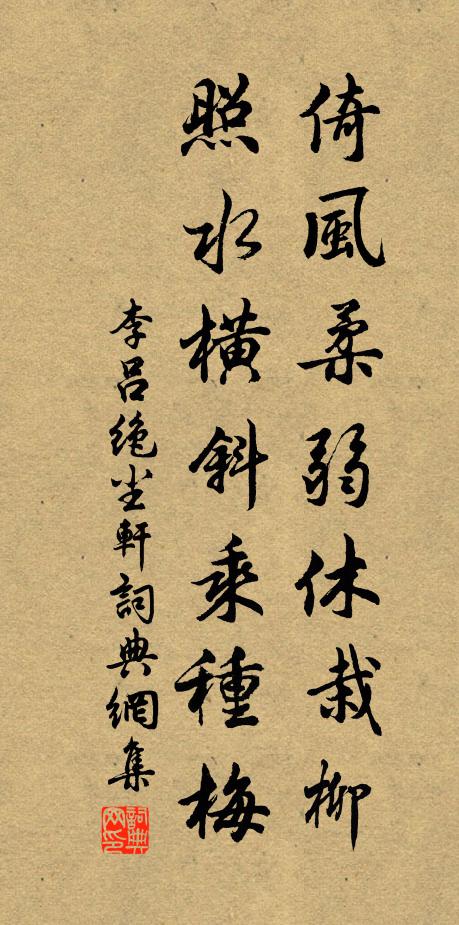 倚風柔弱休栽柳
照水橫斜乘種梅
李呂絶尘軒詞典網集
詞典网印